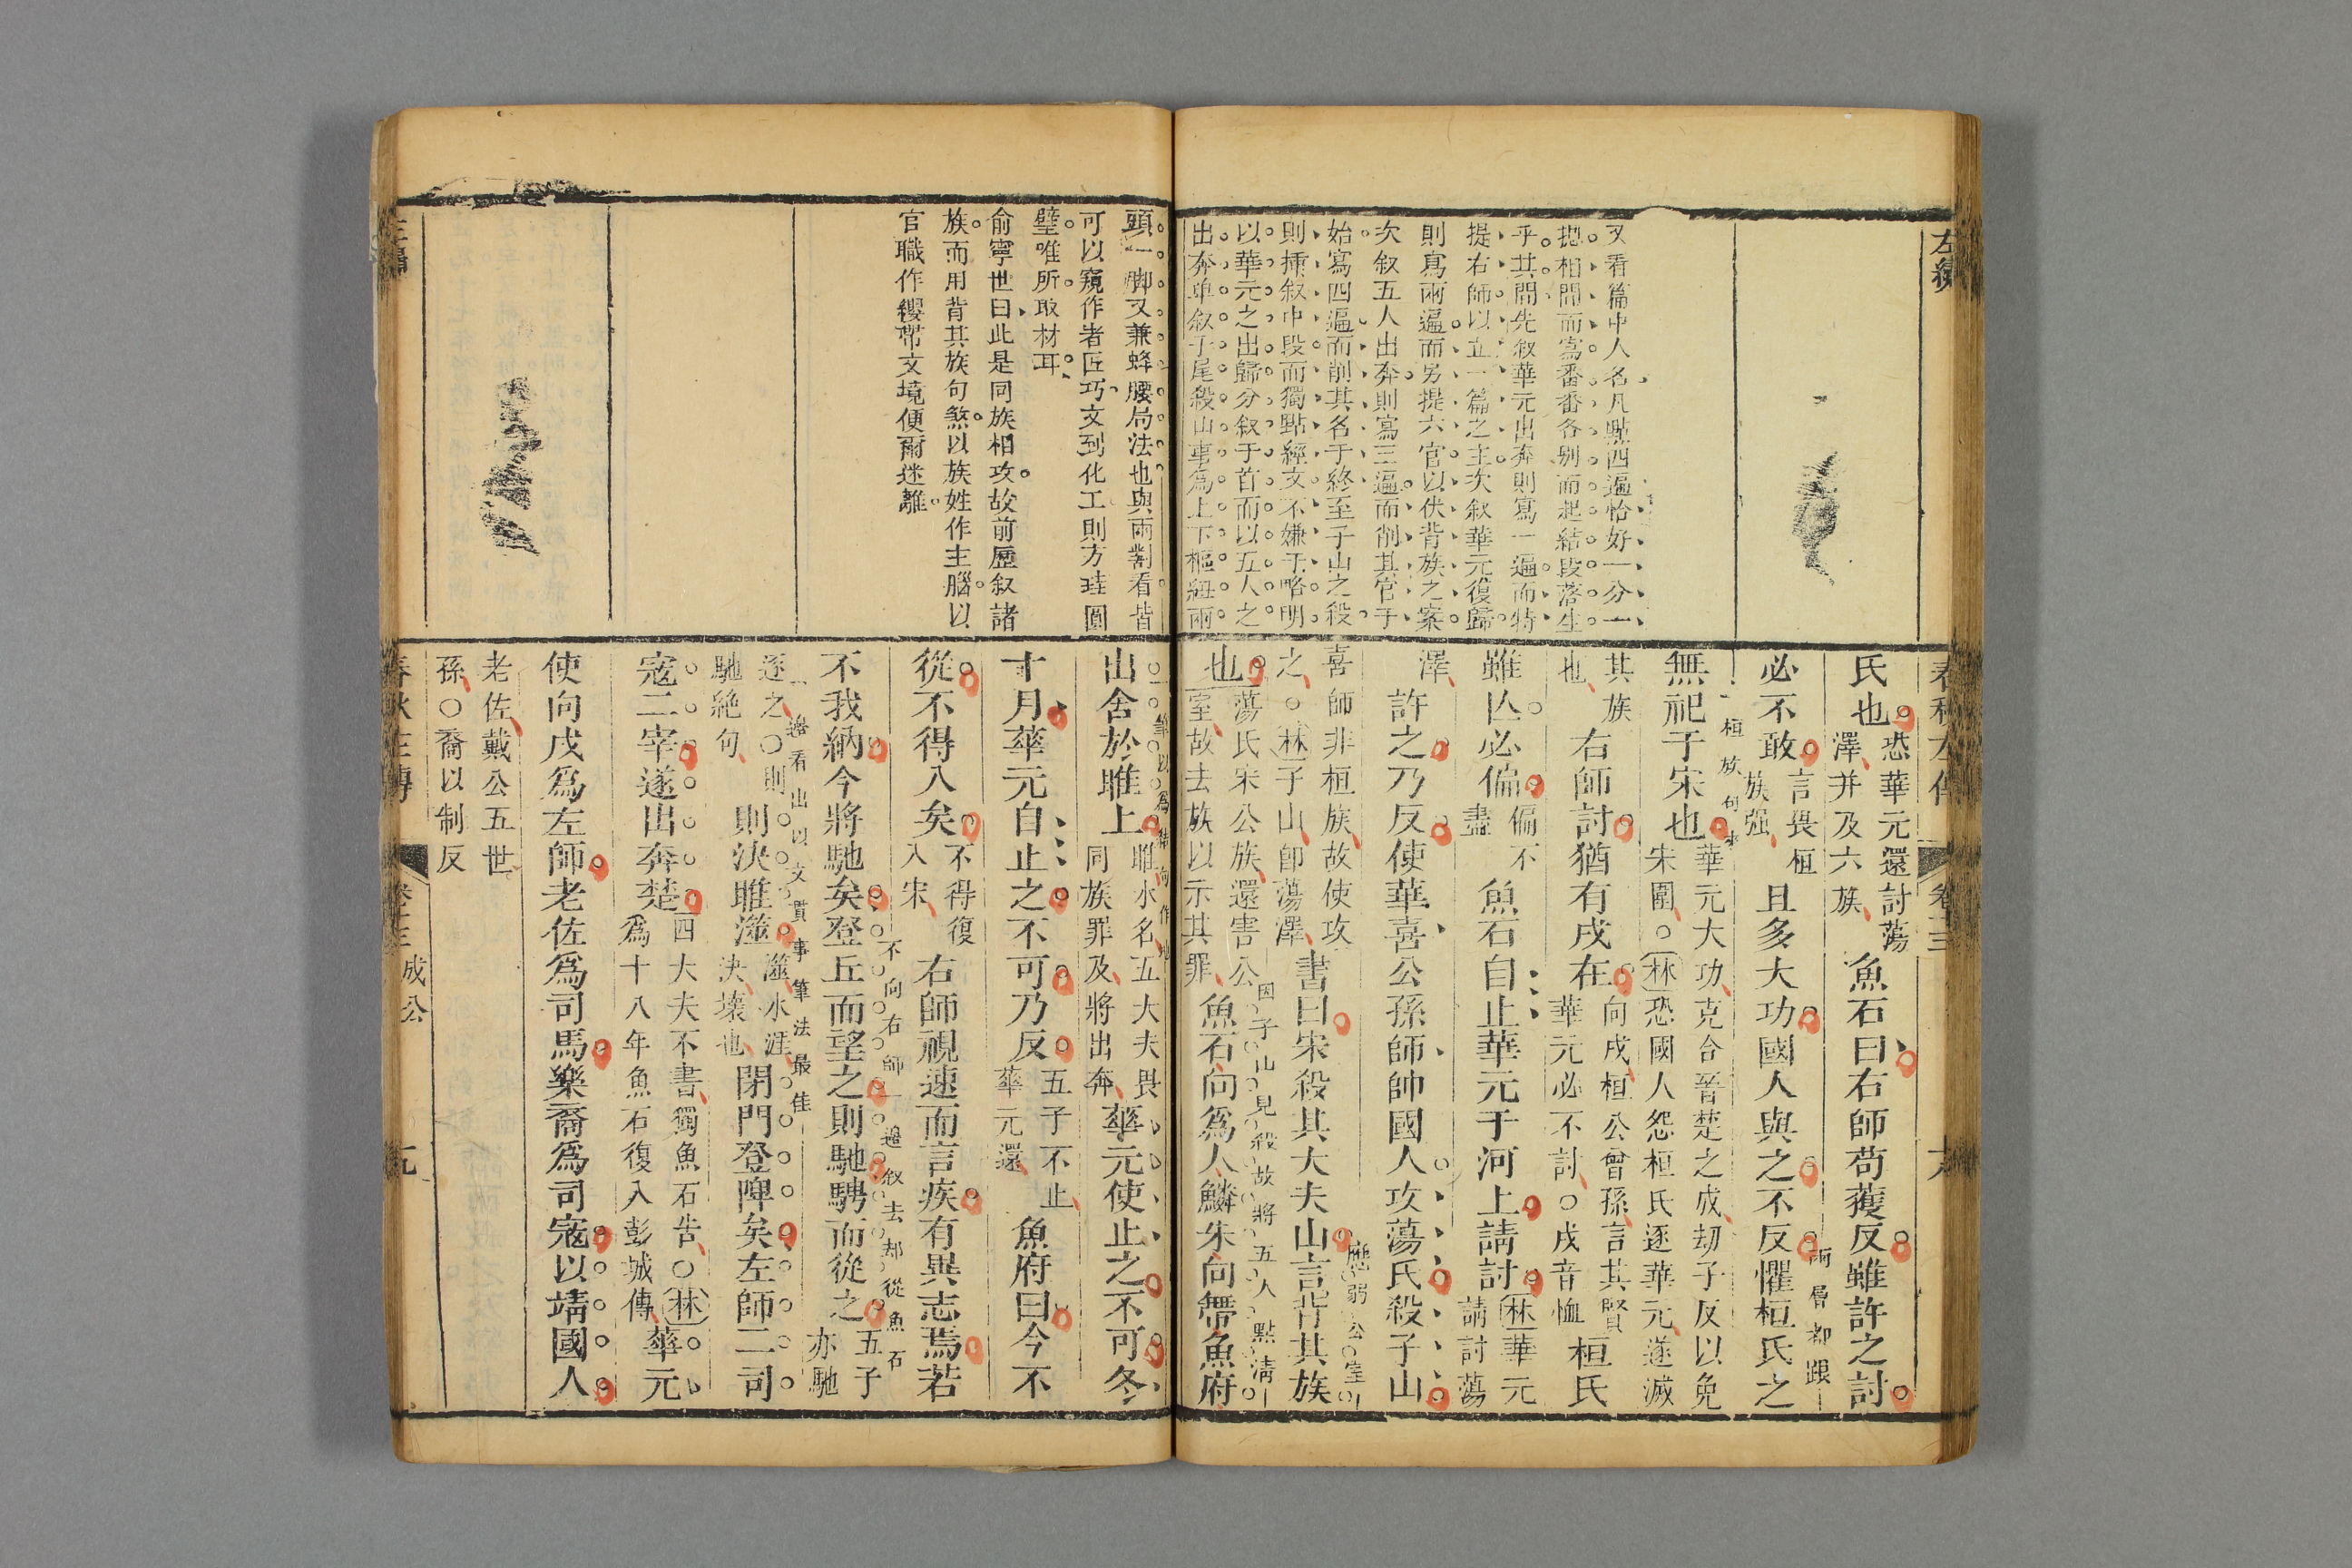 左繡
又看篇中人名凡點四遍恰好一分一
搃相間而寫番番各別而起結段落生
乎其間先叙華元出奔則寫一遍而特
提右師以立一篇之主次叙華元復歸
則寫兩遍而另提六官以伏背族之案
次叙五人出奔則寫三遍而削其官于
始寫四遍而削其名于終至子山之殺
則揷叙中段而獨點經文不嫌于略明
以華元之出歸分叙于首而以五人之
出奔單叙于尾殺山事爲上下樞紐兩
春秋左傳
卷十三
氏也恐華元還討蕩澤并及六族魚石曰右師苟獲反雖許之討
兩層都跟
必不敢言畏桓族强且多大功國人與之不反懼桓氏之
桓族句來
無祀于宋也華元大功克合晉楚之成刧子反以免宋圍○林恐國人怨桓氏逐華元遂滅
其族也右師討猶有戌在向戌桓公曾孫言其賢華元必不討○戌音恤桓氏
雖亾必偏偏不盡魚石自止華元于河上請討林華元請討蕩
澤許之乃反使華喜公孫師帥國人攻蕩氏殺子山
喜師非桓族故使攻之○林子山卽蕩澤書曰宋殺其大夫山言背其族
也蕩氏宋公族還害公室故去族以示其罪魚石向爲人鱗朱向帶魚府
因子山見殺故將五人點淸
頭一脚又兼蜂腰局法也與兩劄看皆
可以窺作者匠巧文到化工則方珪圓
璧唯所取材耳
俞寧世曰此是同族相攻故前歷叙諸
族而用背其族句煞以族姓作主腦以
官職作纓帶文境便爾迷離
出舍於睢上睢水名五大夫畏同族罪及將出奔華元使止之不可冬
十月華元自止之不可乃反五子不止華元還魚府曰今不
從不得入矣不得復入宋右師視速而言疾有異志焉若
不向右師一邊叙去却從魚石
不我納今將馳矣登丘而望之則馳騁而從之五子亦馳
一邊看出以文貫事筆法最佳
逐之○則馳絶句則決睢澨澨水涯決壞也閉門登陴矣左師二司
寇二宰遂出奔楚四大夫不書獨魚石告○林爲十八年魚石復入彭城傳華元
使向戌爲左師老佐爲司馬樂裔爲司寇以靖國人
老佐戴公五世孫○裔以制反
春秋左傳
卷十三
成公